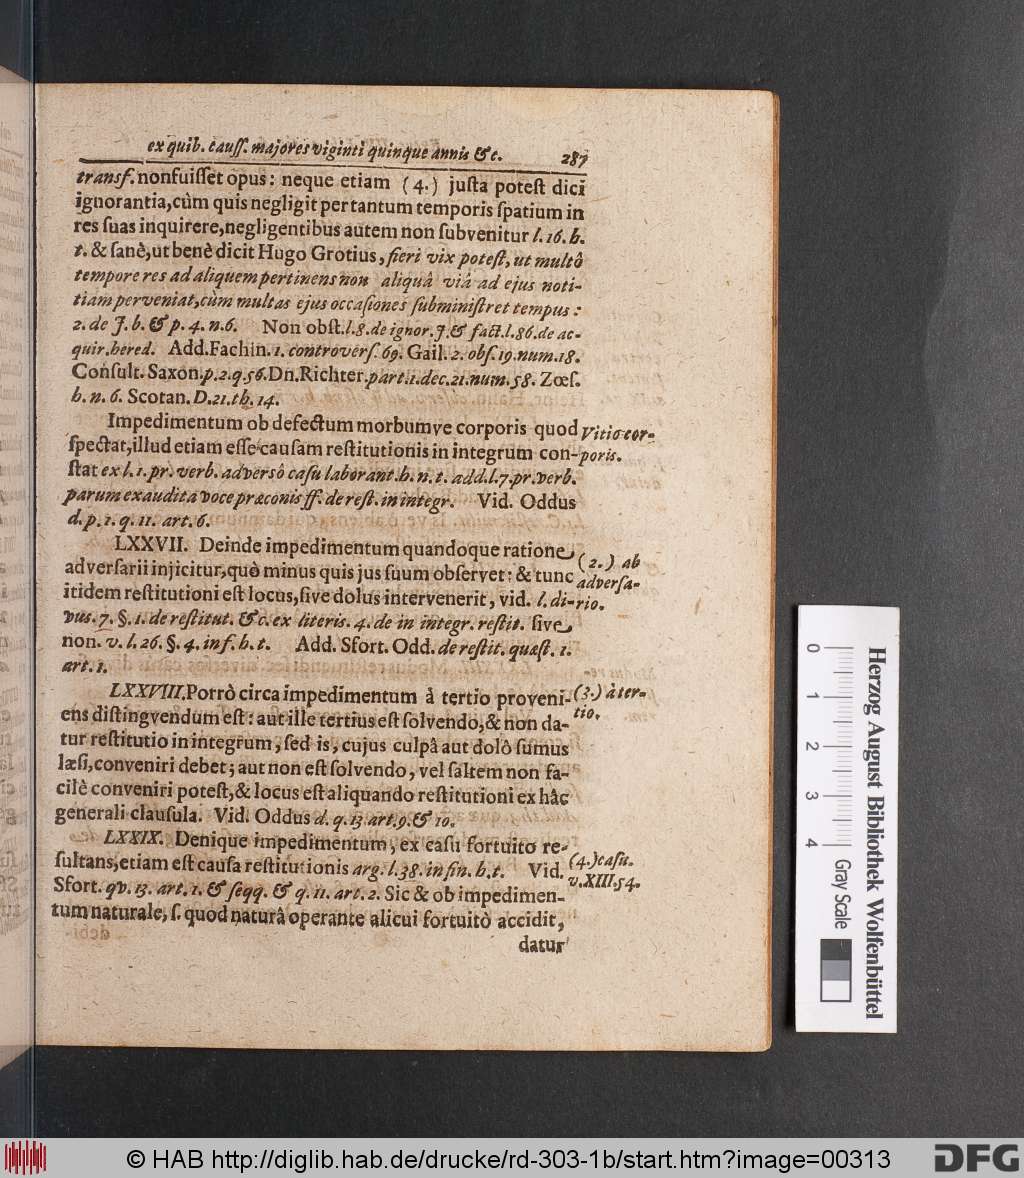 ex quib. cauſſ. majores viginti quinque annis &c. 287
transf. nonfuiſſet opus: neque etiam (4.) juſta poteſt dici
ignorantia, cùm quis negligit per tantum temporis ſpatium in
res ſuas inquirere, negligentibus autem non ſubvenitur l. 16. h.
t. & ſanè, ut benè dicit Hugo Grotius, fieri vix poteſt, ut multô
tempore res ad aliquem pertinens non aliquâ viâ ad ejus noti-
tiam perveniat, cùm multas ejus occaſiones ſubminiſtret tempus:
2. de J. b. & p. 4. n. 6. Non obſt. l. 8. de ignor. J. & fact. l. 86. de ac-
quir. hered. Add. Fachin. 1. controverſ. 69. Gail. 2. obſ. 19. num. 18.
Conſult. Saxon. p. 2. q. 56. Dn. Richter. part. 1. dec. 21. num. 58. Zœſ.
h. n. 6. Scotan. D. 21. th. 14.
Impedimentum ob defectum morbumve corporis quod
Vitio cor-
ſpectat, illud etiam eſſe cauſam reſtitutionis in integrum con-
poris.
ſtat ex l. 1. pr. verb. adversô caſu laborant. h. n. t. add. l. 7. pr. verb.
parum exaudita voce præconis ff. de reſt. in integr. Vid. Oddus
d. p. 1. q. 11. art. 6.
LXXVII. Deinde impedimentum quandoque ratione
(2.) ab
adverſarii injicitur, quò minus quis jus ſuum obſervet: & tunc
adverſa-
itidem reſtitutioni eſt locus, ſive dolus intervenerit, vid. l. di-
rio.
vus. 7. §. 1. de reſtitut. & c. ex literis. 4. de in integr. reſtit. ſive
non. v. l. 26. §. 4. inf. h. t. Add. Sfort. Odd. de reſtit. quæſt. 1.
art. 1.
LXXVIII. Porrò circa impedimentum à tertio proveni-
(3.) à ter-
ens diſtingvendum eſt: aut ille tertius eſt ſolvendo, & non da-
tio.
tur reſtitutio in integrum, ſed is, cujus culpâ aut dolô ſumus
læſi, conveniri debet; aut non eſt ſolvendo, vel ſaltem non fa-
cilè conveniri poteſt, & locus eſt aliquando reſtitutioni ex hâc
generali clauſula. Vid. Oddus d. q. 13 art. 9. & 10.
LXXIX. Denique impedimentum, ex caſu fortuito re-
ſultans, etiam eſt cauſa reſtitutionis arg. l. 38. in fin. h. t. Vid.
(4.) caſu.
Sfort. qv. 13. art. 1. & ſeqq. & q. 11. art. 2. Sic & ob impedimen-
v. XIII. 54.
tum naturale, ſ. quod naturâ operante alicui fortuitò accidit,
datur
0 1 2 3 4
Gray Scale
Herzog August Bibliothek Wolfenbüttel
© HAB http://diglib.hab.de/drucke/rd-303-1b/start.htm?image=00313
DFG